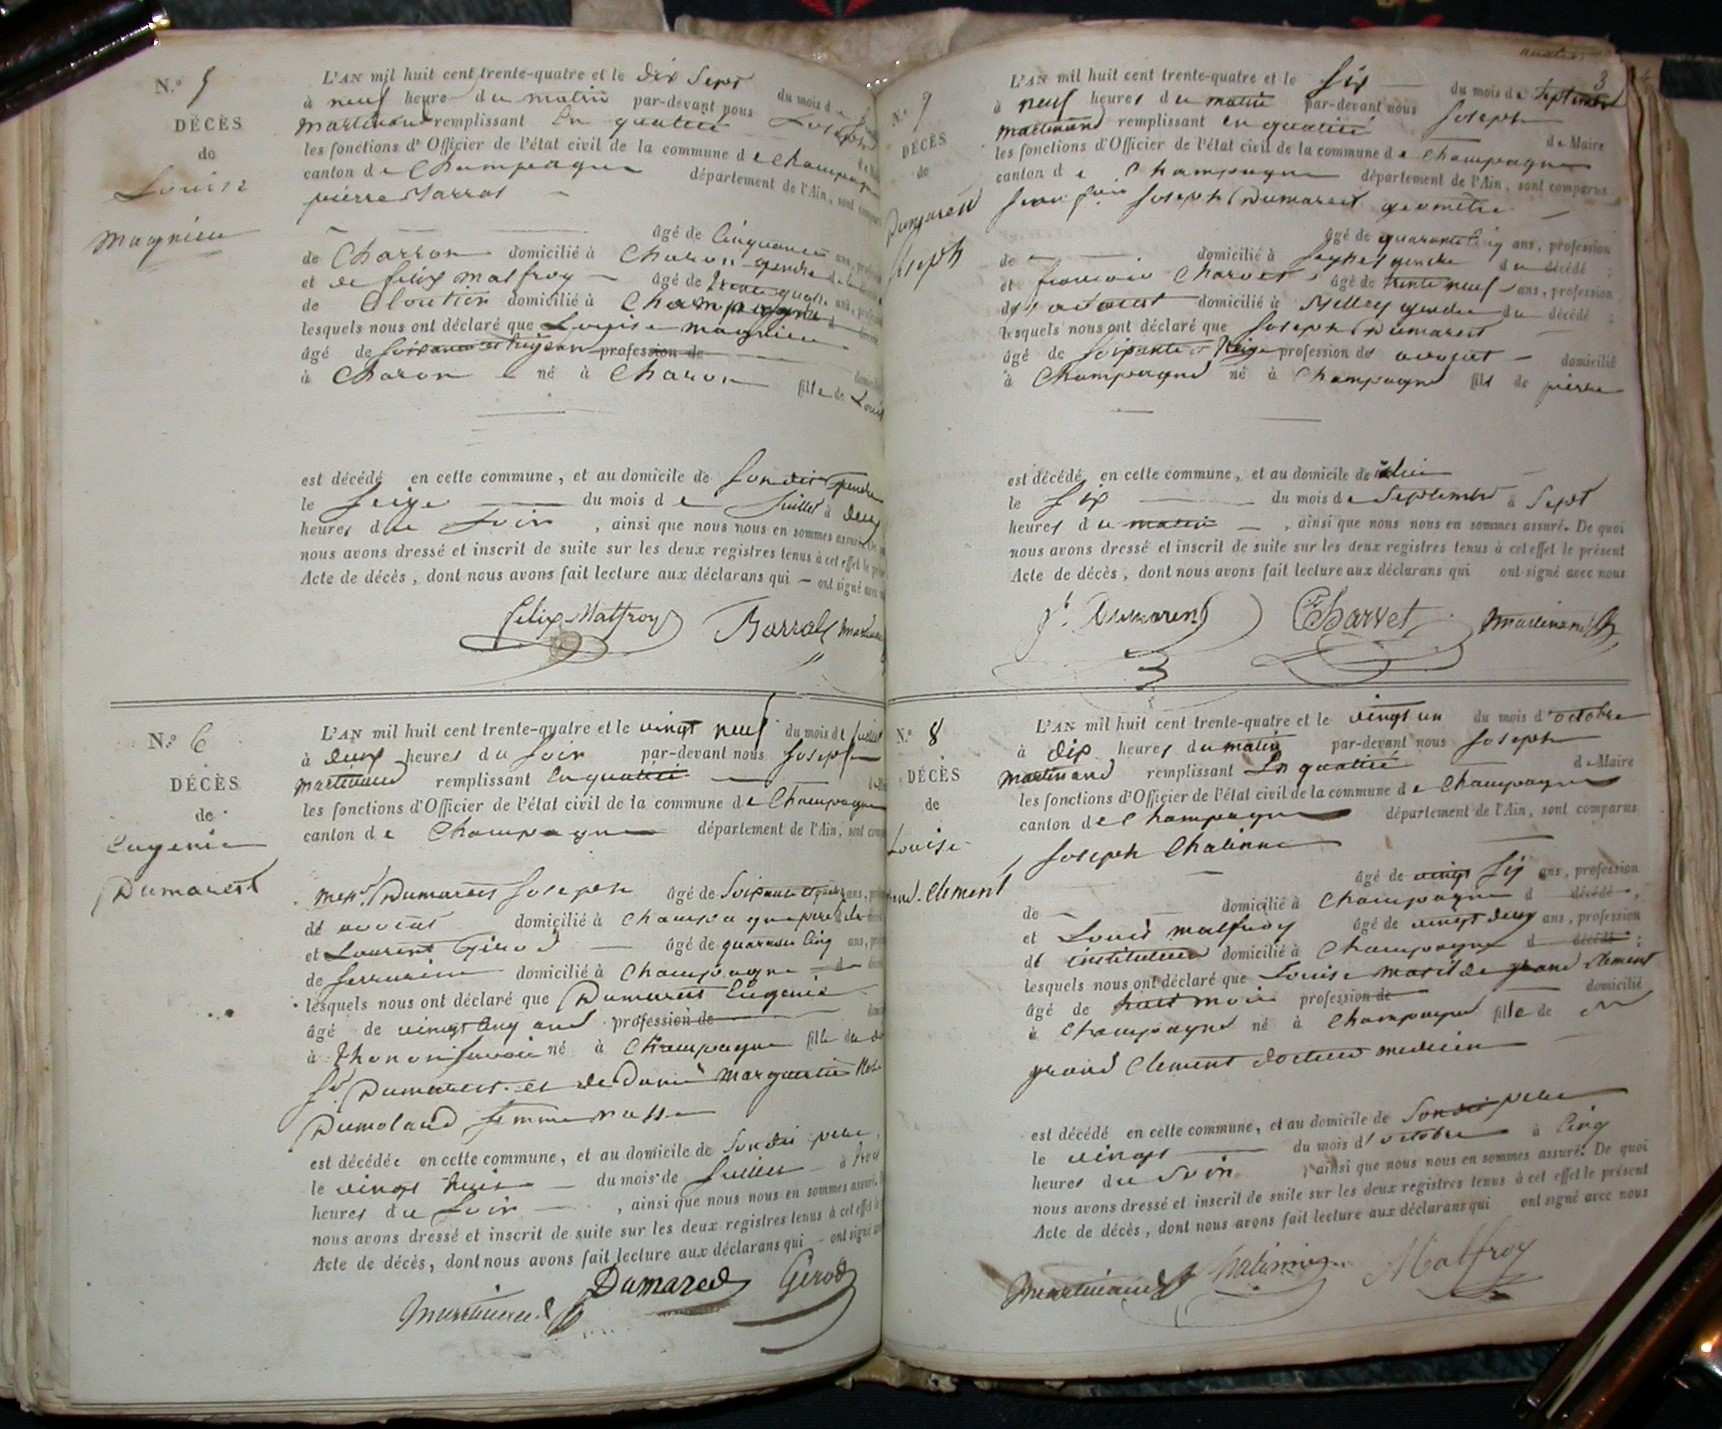 N.º 5
DÉCÈS
de
Louise
Magnieu
L'AN mil huit cent trente-quatre et le dix Sept
du mois d
à neuf heures du matin par-devant nous Joseph
Martinand remplissant En qualité
les fonctions d'Officier de l'état civil de la commune de Champagne
canton de Champagne département de l'Ain, sont
pierre Barral
âgé de Cinquante ans,
de Charron domicilié à Charon gendre
et de felix Malfroy âgé de trente quatre ans,
de Cloutier domicilié à Champagne
lesquels nous ont déclaré que Louise Magnieu
âgé de profession de
à Charon né à Charon fille de Louis
est décédé en cette commune, et au domicile de Son dit gendre
le Seize du mois de Juillet à deux
heures du Soir, ainsi que nous nous en sommes assuré. De
nous avons dressé et inscrit de suite sur les deux registres tenus à cet effet le
Acte de décès, dont nous avons fait lecture aux déclarans qui ont signé avec
Felix Malfroy Barral
N.º 6
DÉCÈS
de
Eugenie
Dumarest
L'AN mil huit cent trente-quatre et le vingt neuf du mois de Juillet
à deux heures du Soir par-devant nous Joseph
Martinand remplissant En qualité
les fonctions d'Officier de l'état civil de la commune de Champagne
canton de Champagne département de l'Ain, sont
Dumarest Joseph âgé de ans,
de avocat domicilié à Champagne père de
et Laurent Girod âgé de quarante Cinq ans,
de Serrurier domicilié à Champagne, d
lesquels nous ont déclaré que Dumarest Eugenie
âgé de vingt ans profession de
à thonon Savoie né à Champagne fille du
Sr Dumarest et de Dame Marguerite
femme
est décédée en cette commune, et au domicile de Son dit père
le vingt huit du mois de Juillet à
heures du Soir, ainsi que nous nous en sommes assuré.
nous avons dressé et inscrit de suite sur les deux registres tenus à cet effet
Acte de décès, dont nous avons fait lecture aux déclarans qui ont signé
Dumarest Girod
Martinand
3
N.º 7
DÉCÈS
de
Dumarest
Joseph
L'AN mil huit cent trente-quatre et le Six du mois de Septembre
à neuf heures du matin par-devant nous Joseph
Martinand remplissant en qualité de Maire
les fonctions d'Officier de l'état civil de la commune de Champagne
canton de Champagne département de l'Ain, sont comparus
Joseph Dumarest géomètre
âgé de quarante Cinq ans, profession
de domicilié à Seyssel gendre du décédé;
et françois Charvet âgé de trente neuf ans, profession
d'avocat domicilié à gendre du décédé;
lesquels nous ont déclaré que Joseph Dumarest
âgé de Soixante et profession de avocat domicilié
à Champagne né à Champagne fils de pierre
est décédé en cette commune, et au domicile de
le Six du mois de Septembre à Sept
heures du matin, ainsi que nous nous en sommes assuré. De quoi
nous avons dressé et inscrit de suite sur les deux registres tenus à cet effet le présent
Acte de décès, dont nous avons fait lecture aux déclarans qui ont signé avec nous
Dumarest Charvet Martinand
N.º 8
DÉCÈS
de
Louise
. Clement
L'AN mil huit cent trente-quatre et le vingt un du mois d'octobre
à dix heures du matin par-devant nous Joseph
Martinand remplissant En qualité de Maire
les fonctions d'Officier de l'état civil de la commune de Champagne
canton de Champagne département de l'Ain, sont comparus
Joseph
âgé de vingt Six ans, profession
de domicilié à Champagne d décédé,
et Louis Malfroy âgé de vingt deux ans, profession
de instituteur domicilié à Champagne d décédé;
lesquels nous ont déclaré que Louise grand Clement
âgé de huit mois profession de domicilié
à Champagne né à Champagne fille de
grand Clement docteur medecin
est décédé en cette commune, et au domicile de Son dit père
le vingt du mois d'octobre à Cinq
heures du Soir, ainsi que nous nous en sommes assuré. De quoi
nous avons dressé et inscrit de suite sur les deux registres tenus à cet effet le présent
Acte de décès, dont nous avons fait lecture aux déclarans qui ont signé avec nous
Martinand Malfroy